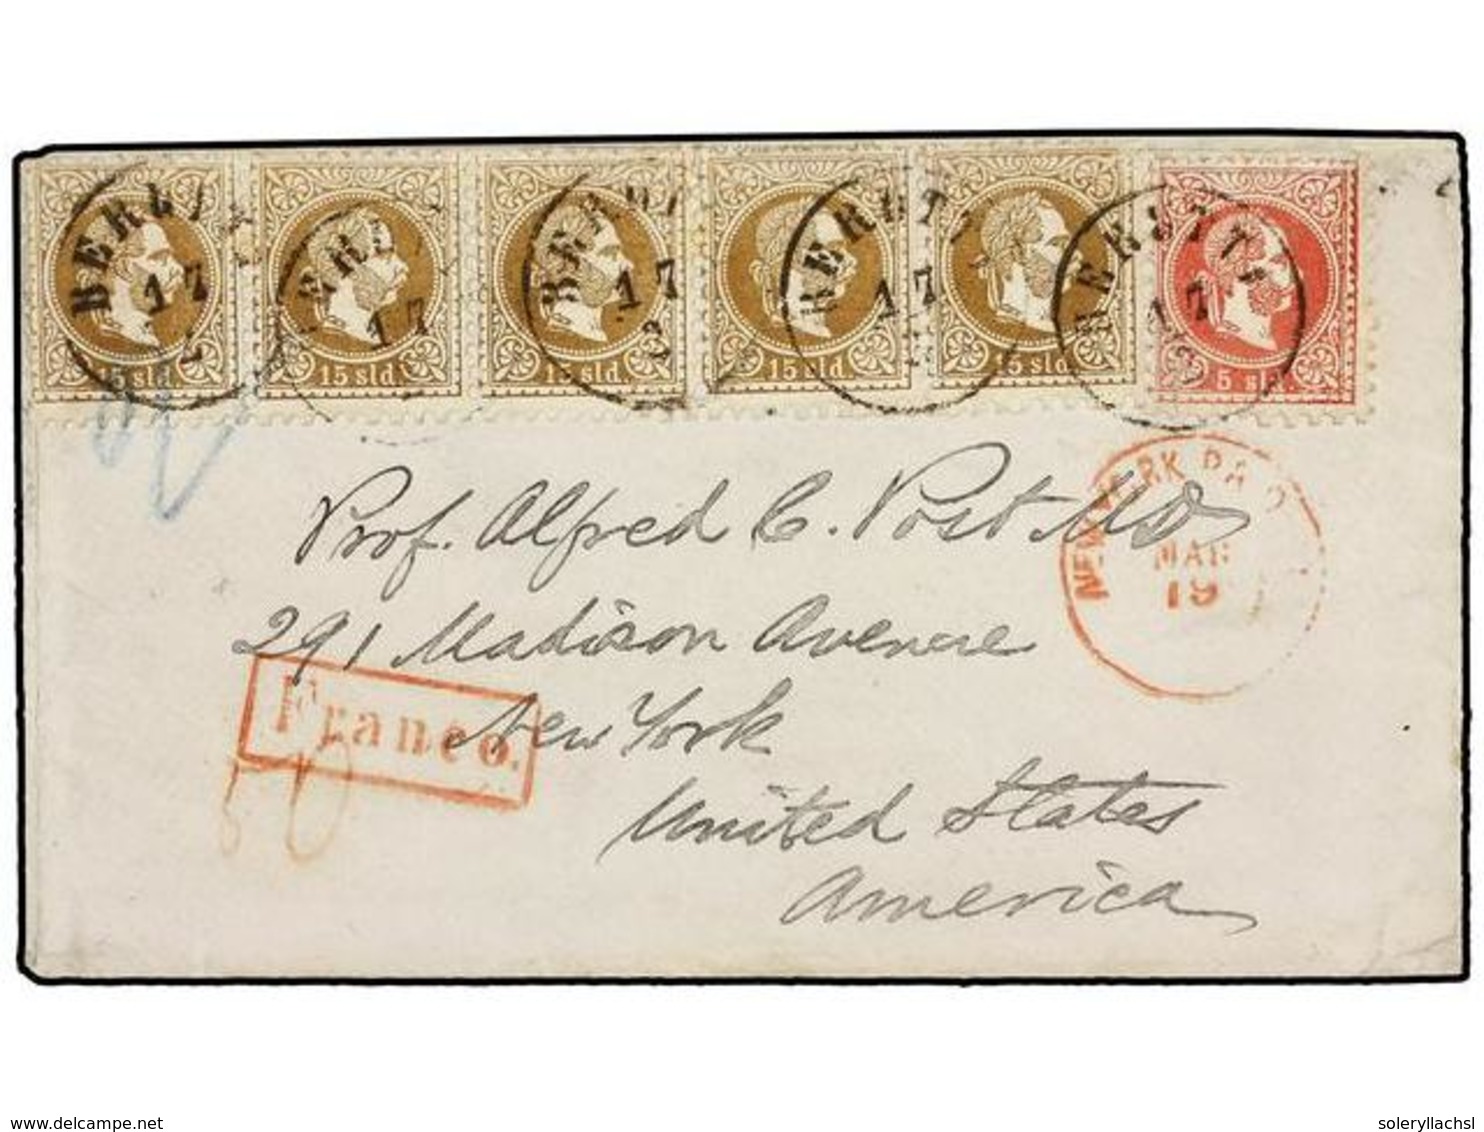 BERUTTI
17
BERUTTI
17
BERUTTI
17
BERUTTI
17
BERUTTI
17
15 sld.
15 sld.
15 sld.
15 sld.
15 sld.
5 sld.
NEW YORK PAID
MAR
19
Prof. Alfred C. Post MD
291 Madison Avenue
Franco.
New York
United States
America
www.delcampe.net
soleryllachsl